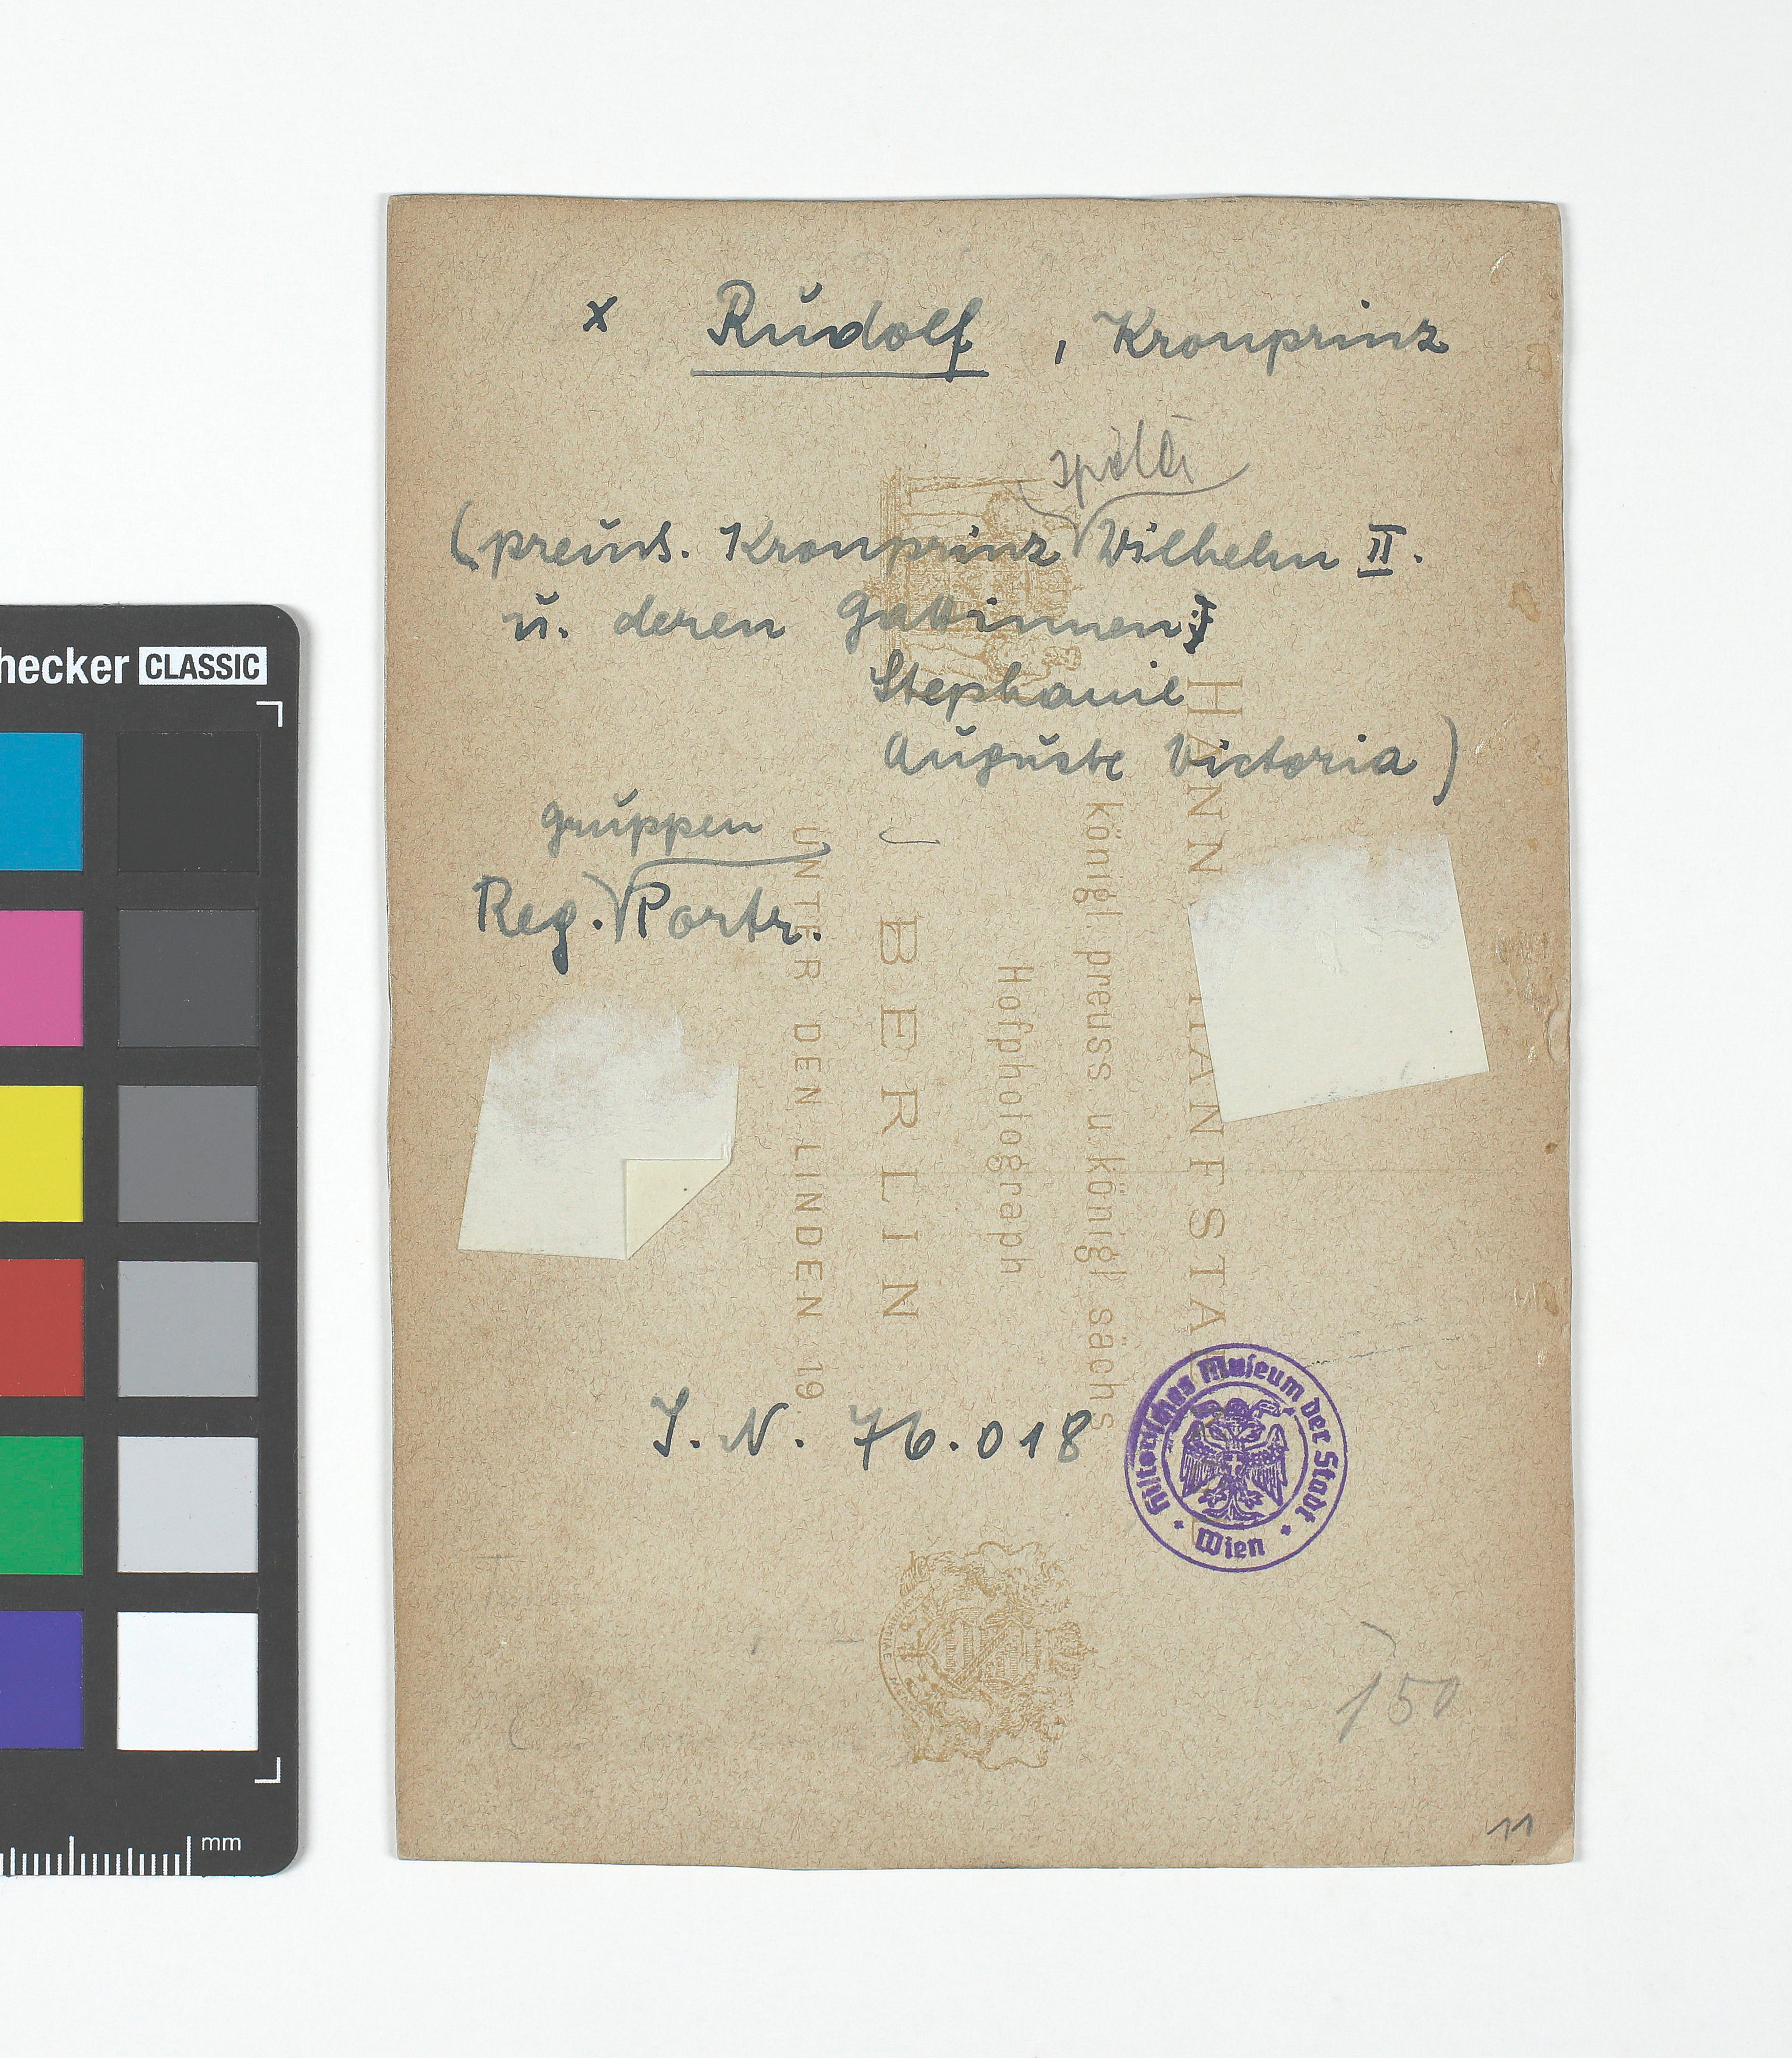 x Rudolf, Kronprinz
später
(preuss. Kronprinz Wilhelm II.
u. deren Gattinnen:
Stephanie
Auguste Victoria)
gruppen
Reg. Portr.
HANNS HANFSTA
königl. preuss. u. königl. sächs.
Hofphotograph
BERLIN
UNTER DEN LINDEN 19
I. N. 76.018
Historisches Museum der Stadt
Wien
150
11
hecker CLASSIC
mm